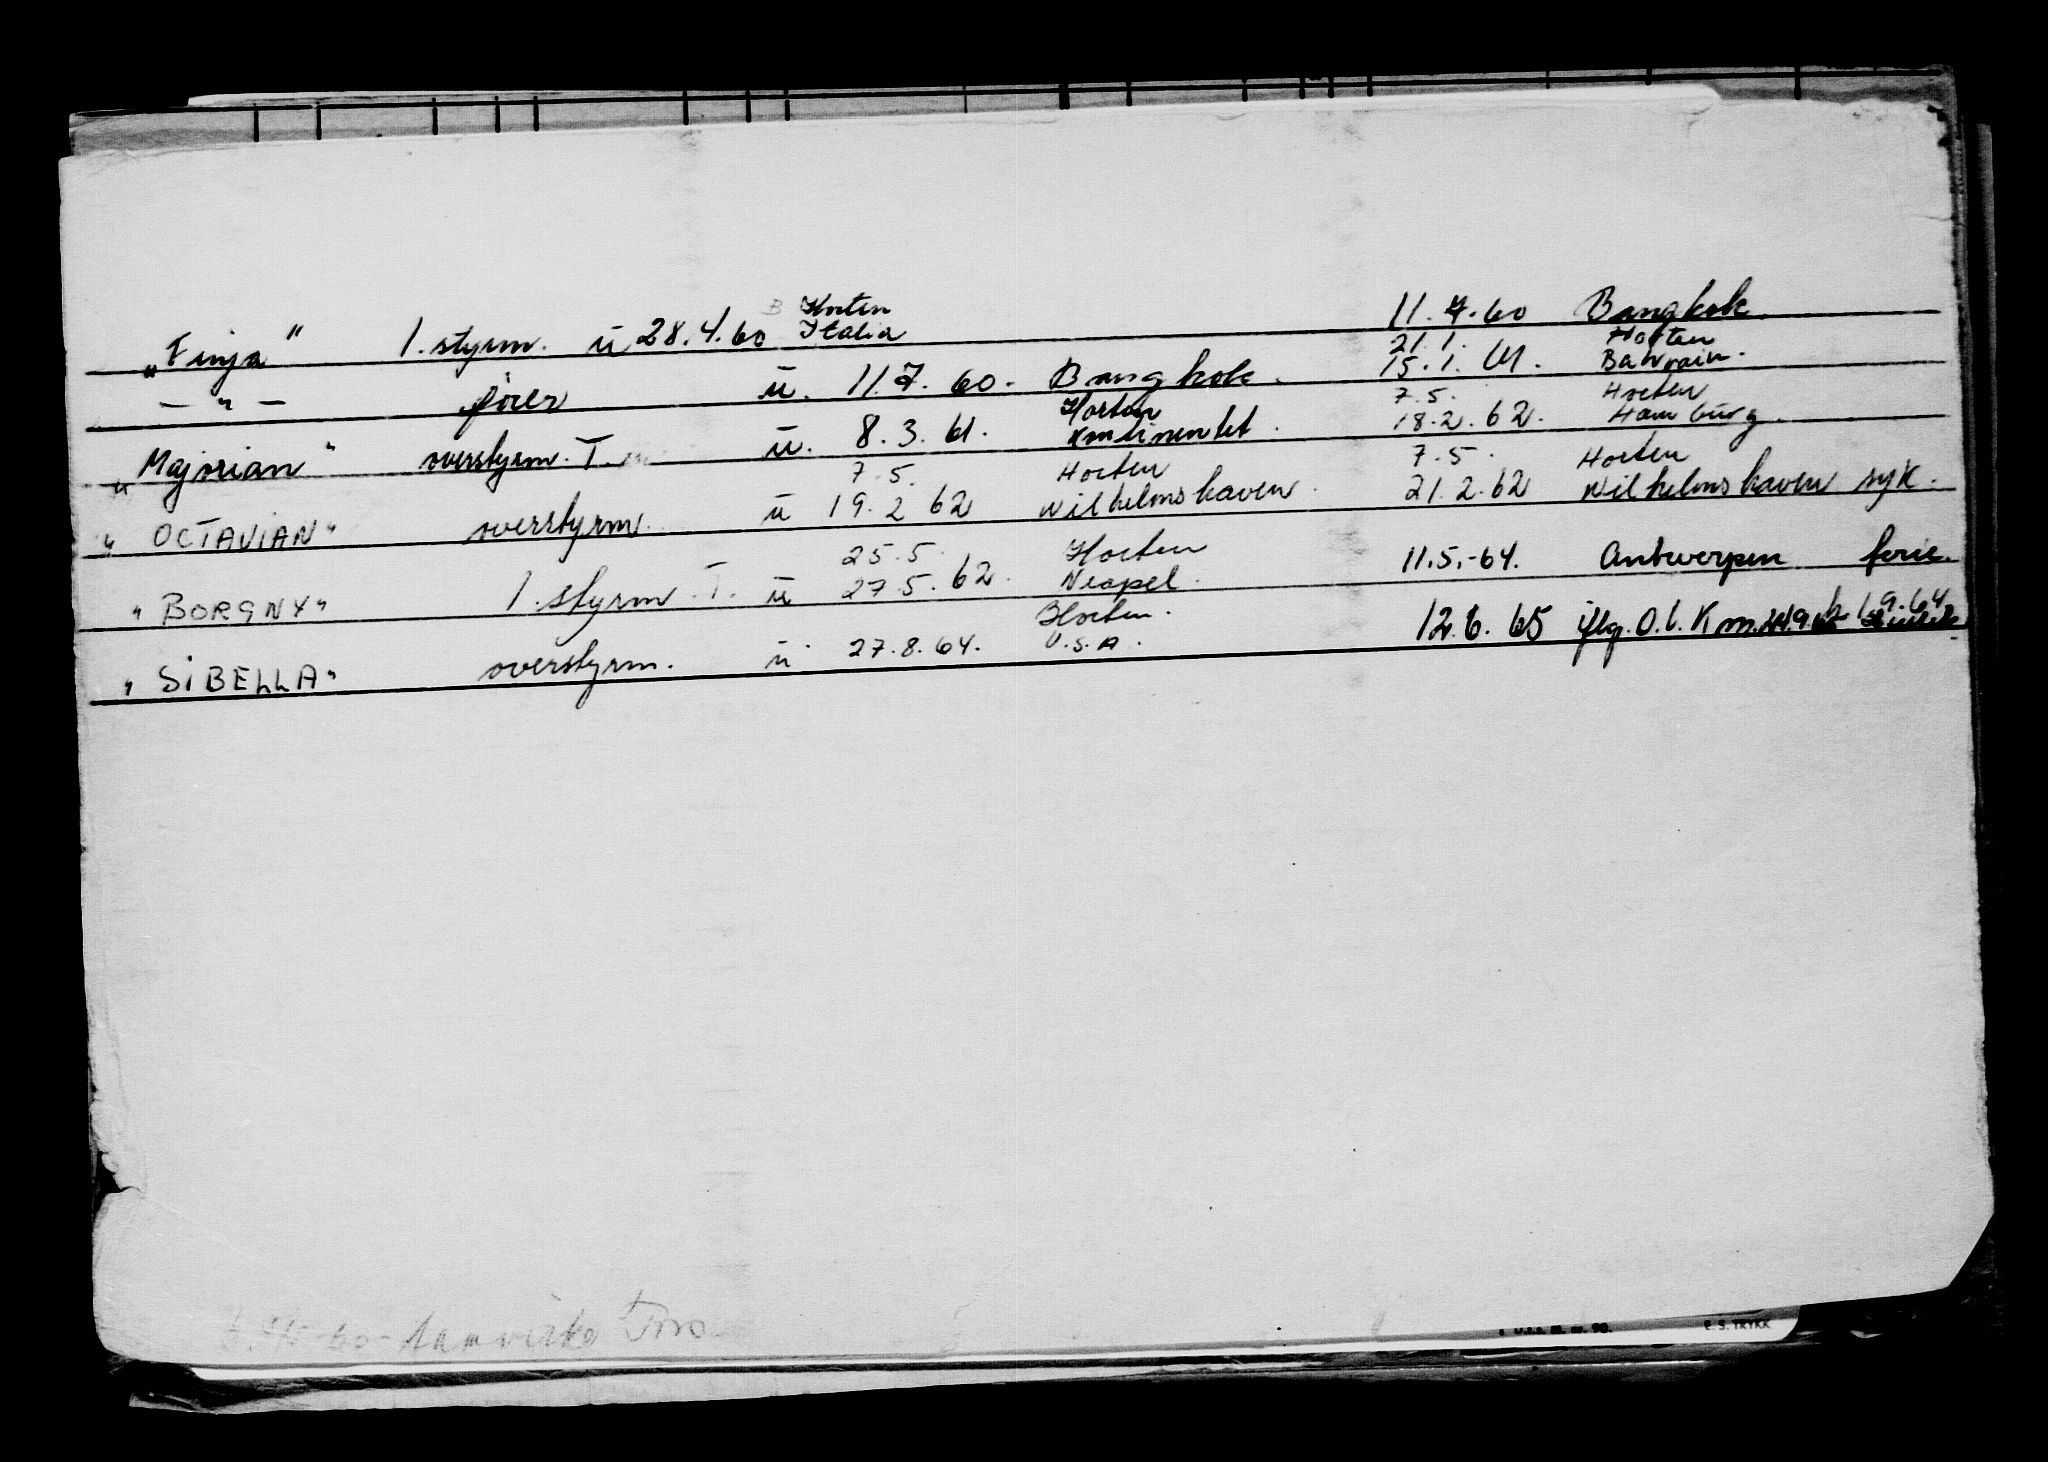 „Finja" 1. styrm. u 28.4.60 Horten Italia 11.7.60 Bangkok.
— " — fører u. 11.7.60. Bangkok. 21.1. Horten 15.1.61. Bahrain.
„Majorian" overstyrm. T. u. 8.3.61. Horten Kontinentet. 7.5. Horten 18.2.62. Hamburg.
„OCTAVIAN" overstyrm. u 7.5. Horten 19.2 62 Wilhelmshaven. 7.5. Horten 21.2.62 Wilhelmshaven syk.
"BORGNY" 1. styrm. T. u 25.5. Horten 27.5.62. Neapel. 11.5.-64. Antwerpen ferie.
"SIBELLA" overstyrm. u 27.8.64. Horten. U.S.A. 12.6.65 iflg. O.l. K 1.9.64
E. S. TRYKK